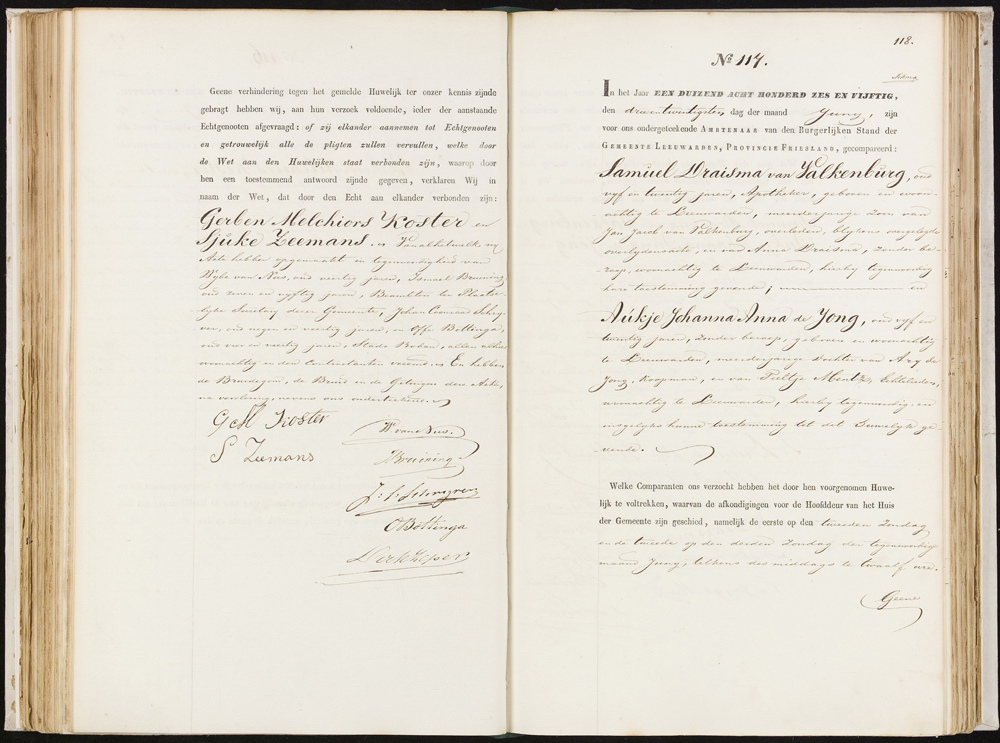 Geene verhindering tegen het gemelde Huwelijk ter onzer kennis zijnde
gebragt hebben wij, aan hun verzoek voldoende, ieder der aanstaande
Echtgenooten afgevraagd: of zij elkander aannemen tot Echtgenooten
en getrouwelijk alle de pligten zullen vervullen, welke door
de Wet aan den Huwelijken staat verbonden zijn, waarop door
hen een toestemmend antwoord zijnde gegeven, verklaren Wij in
naam der Wet, dat door den Echt aan elkander verbonden zijn:
Gerben Melchiors Koster en
Sjúke Zeemans. Van alhetwelk wij
Acte hebben opgemaakt in tegenwoordigheid van
Wybe van Nus, oud veertig jaren, Ismael Bruining
oud zeven en vyftig jaren, Beambten ter Plaatse-
lyke Secretary dezer Gemeente, Johan Coenraad
oud negen en veertig jaren, en Offe Bottinga,
oud vier en veertig jaren, Stads Boden, allen alhier
woonachtig en den contractanten vreemd. En hebben
de Bruidegom, de Bruid en de Getuigen deze Acte,
na voorlezing, nevens ons onderteekend.
G M Koster
S Zeemans
W van Nus.
Bruining
O Bottinga
Dirk Zeper
118.
No 117.
In het Jaar EEN DUIZEND ACHT HONDERD ZES EN VIJFTIG,
den drieentwintigsten dag der maand Juny, zijn
voor ons ondergeteekende AMBTENAAR van den Burgerlijken Stand der
GEMEENTE LEEUWARDEN, PROVINCIE FRIESLAND, gecompareerd:
Samuel Draisma van Valkenburg, oud
vyf en twintig jaren, Apotheker, geboren en woon-
achtig te Leeuwarden, meerderjarige zoon van
Jan Jacob van Valkenburg, overleden, blykens overgelegde
overlydensacte, en van Anna Draisma, zonder be-
roep, woonachtig te Leeuwarden, hierby tegenwoordig
hare toestemming gevende; en
Aúkje Johanna Anna de Jong, oud vyf en
twintig jaren, zonder beroep, geboren en woonachtig
te Leeuwarden, meerderjarige dochter van Ary de
Jong, koopman, en van Tjeltje Mentz, echtelieden,
woonachtig te Leeuwarden, hierby tegenwoordig en
insgelyks hunne toestemming tot dit Huwelyk ge-
vende.
Welke Comparanten ons verzocht hebben het door hen voorgenomen Huwe-
lijk te voltrekken, waarvan de afkondigingen voor de Hoofddeur van het Huis
der Gemeente zijn geschied, namelijk de eerste op den tweeden Zondag
en de tweede op den derden Zondag der tegenwoordige
maand Juny, telkens des middags te twaalf ure.
Geene